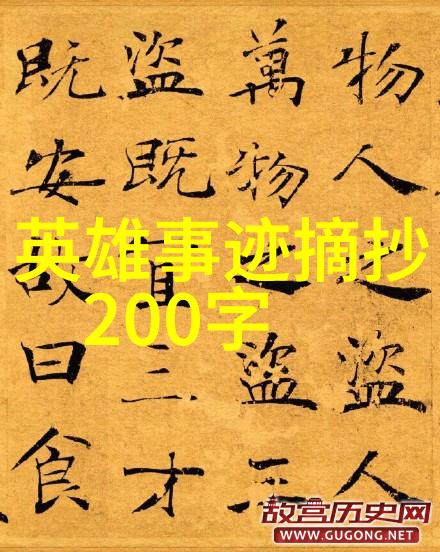 物人之盗人
萬物之盗三
盗既宜三才
既安故曰食
英雄事迹摘抄
200字
故宫历史网
WWW.GUGONG.NET